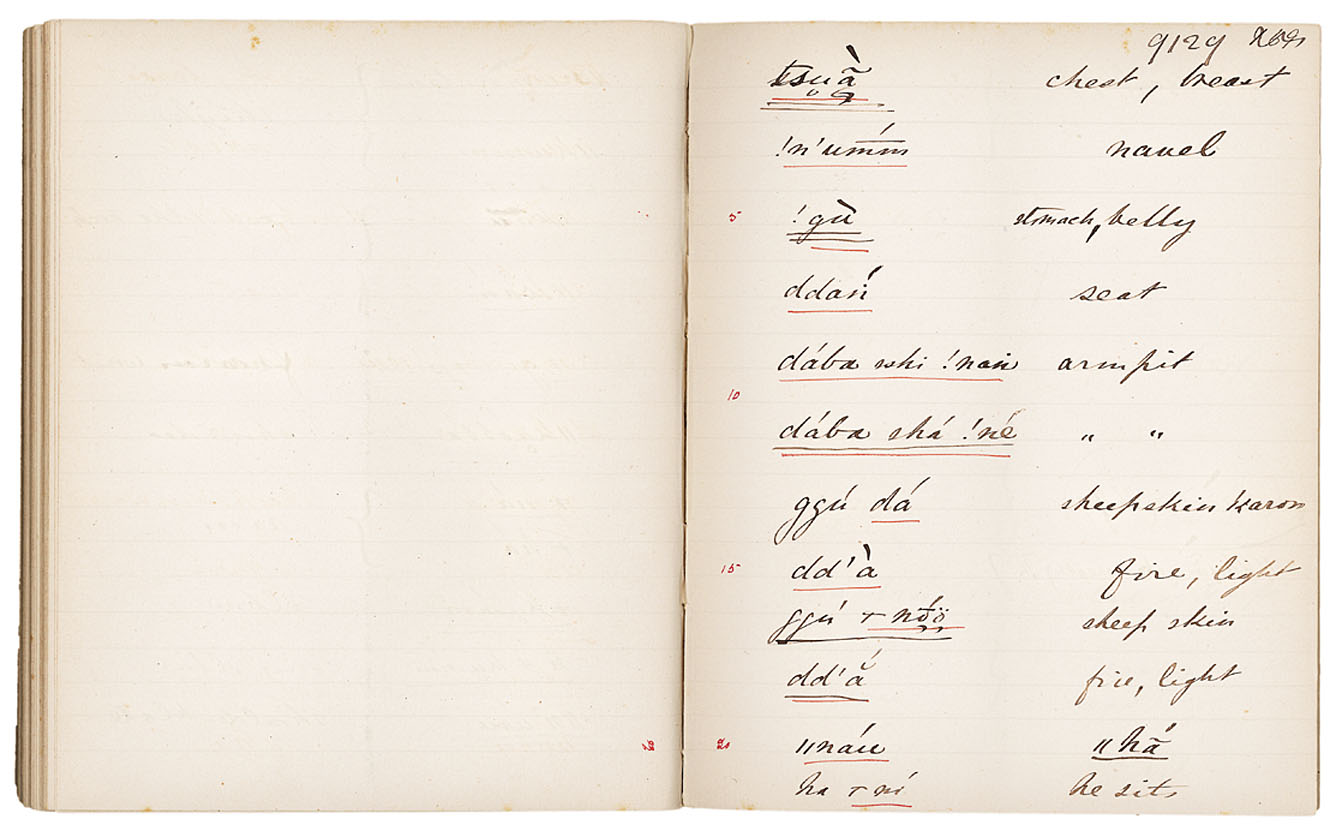 9129
tsũą̀ chest, breast
!n'umḿ navel
5 !gù stomach, belly
ddań seat
dába !nań armpit
10
dába shá !né " "
ggú dá sheepskin kaross
15 dd'à fire, light
ggú sheep skin
dd'ā́ fire, light
20 20 ǁnáu ǁhā́
ha ┬ ní he sits